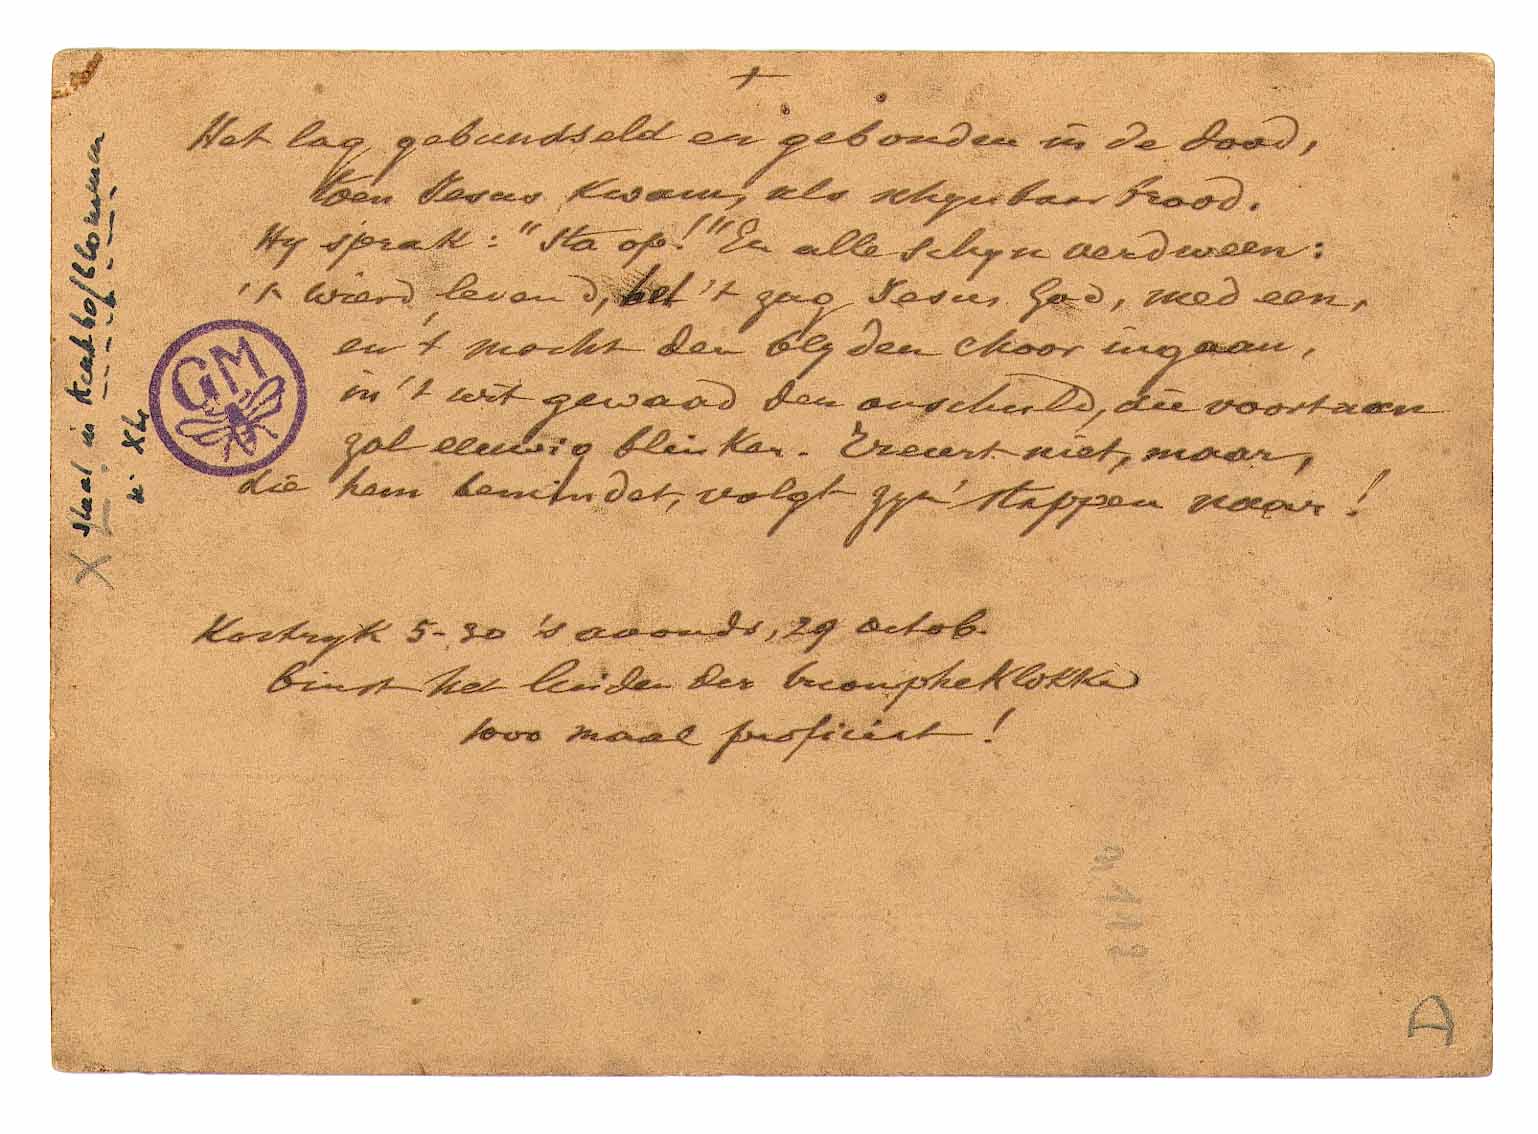 +
Het lag gebundseld en gebonden in de dood,
toen Jesus kwam, als schynbaar brood.
Hy sprak: "Sta op!" En alle schyn verdween:
't wierd levend, het 't zag Jesus God, med een,
en 't mocht den blyden choor ingaan,
in 't wit gewaad den onschuld, die voortaan
zal eeuwig blinken. Treurt niet, maar,
die hem bemindet, volgt zyn' stappen naar!
Kortryk 5-30 's avonds, 29 octob.
binst het luiden der triompheklokke
1000 maal proficiat!
X staat in Kerkhofblommen
in XL
GM
D